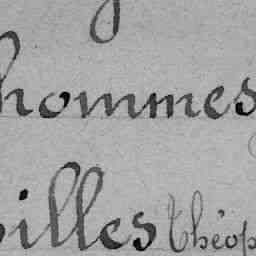 hommes
illes Théop